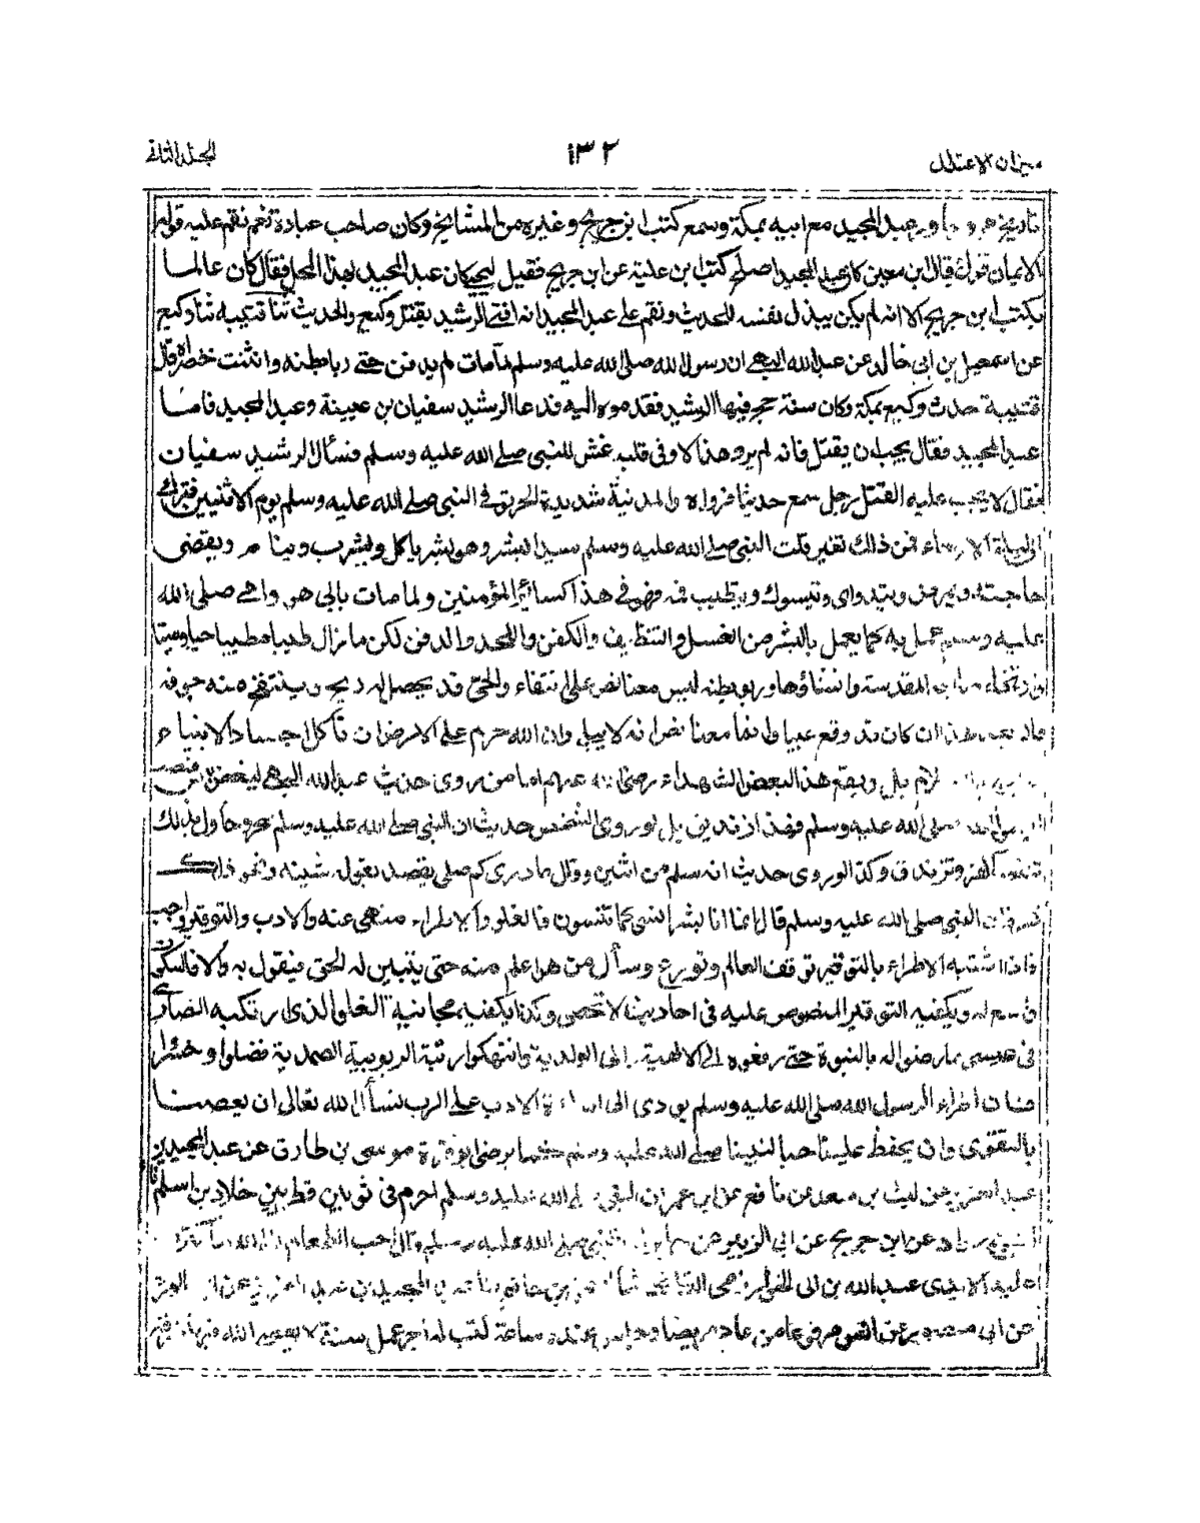 ميزان الاعتدال ١٣٢ المجلد الثانى
عبد المجيد مع ابيه بمكة وسمع كتب ابن جريج وغيره من المشائخ وكان صاحب عبادة نقم عليه قوله
الايمان قول قال ابن معين كان عبد المجيد اصلح كتب ابن علية عن ابن جريج فقيل ليحيى كان عبد المجيد بهذا المحل فقال كان عالما
بكتب ابن جريج الا انه لم يكن يبذل نفسه للحديث ونقم على عبد المجيد انه افتى الرشيد بقتل وكيع والحديث ثنا قتيبة ثنا وكيع
عن اسمعيل بن ابى خالد عن عبد الله البهى ان رسول الله صلى الله عليه وسلم لما مات لم يدفن حتى ربا بطنه وانثنت خنصراه قال
قتيبة حدث وكيع بمكة وكان سنة حج فيها الرشيد فقدموه اليه فدعا الرشيد سفيان بن عيينة وعبد المجيد فاما
عبد المجيد فقال يجب ان يقتل فانه لم يرو هذا الا وفى قلبه غش للنبى صلى الله عليه وسلم فسأل الرشيد سفيان
فقال لا يجب عليه القتل رجل سمع حديثا فرواه والمدينة شديدة الحر توفى النبى صلى الله عليه وسلم يوم الاثنين فترك
الى ليلة الاربعاء فمن ذلك تغير قلت النبى صلى الله عليه وسلم سيد البشر وهو بشر ياكل ويشرب وينام ويقضى
حاجته ويمرض ويتداوى ويتسوك ويتطيب فمه فهو فى هذا كسائر المؤمنين ولما مات بابى هو وامى صلى الله
عليه وسلم عمل به كما يعمل بالبشر من الغسل والتنظيف والكفن واللحد والدفن لكن ما زال طيبا مطيبا حيا وميتا
وارتخاء المقدسة وانثناؤها وربو بطنه ليس معنا نص على انتفاء والحى قد يحصل له ريح وينتفخ منه جوفه
هذا ان كان قد وقع عيبا وانما معنا نص انه لا يبلى وان الله حرم على الارض ان تاكل اجساد الانبياء
بل ويقع هذا لبعض الشهداء رضى الله عنهم اما من روى حديث عبد الله البهى ليغض
رسول الله صلى الله عليه وسلم فهذا زنديق بل لو روى الشخص حديث ان النبى صلى الله عليه وسلم سحر وحاول بذلك
تنقصا كفر وتزندق وكذا لو روى حديث انه سلم من اثنين وقال ما درى كم صلى يقصد بقوله شينه ونحو ذلك
كفر فان النبى صلى الله عليه وسلم قال انما انا بشر انسى كما تنسون فالغلو والاطراء منهى عنه والادب والتوقير واجب
فاذا اشتبه الاطراء بالتوقير توقف العالم وتورع وسأل من هو اعلم منه حتى يتبين له الحق فيقول به والا فالسكوت
واسع له ويكفيه التوقير المنصوص عليه فى احاديث لا تحصى وكذا يكفيه مجانبة الغلو الذى ارتكبه النصارى
فى عيسى ما رضوا له بالنبوة حتى رفعوه الى الالهية والى الوالدية وانتهكوا رتبة الربوبية الصمدية فضلوا وخسروا
فان اطراء الرسول الله صلى الله عليه وسلم يودى الى اساءة الادب على الرب نسأل الله تعالى ان يعصمنا
بالتقوى وان يحفظ علينا حبنا لنبينا صلى الله عليه وسلم كما يرضى ابو قرة موسى بن طارق عن عبد المجيد بن
عبد العزيز عن ليث بن سعد عن نافع عن ابن عمر ان النبى صلى الله عليه وسلم احرم فى ثوبين قطريين خلاد بن اسلم
رواد عن ابن جريج عن ابى الزبير عن النبى صلى الله عليه وسلم قال احب الطعام الى الله ما كثرت
عليه الايدى عبد الله بن ابى
عن ابى عن انس من عاد مريضا وجلس عنده ساعة كتب له اجر عمل سنة لا يعصى الله فيها